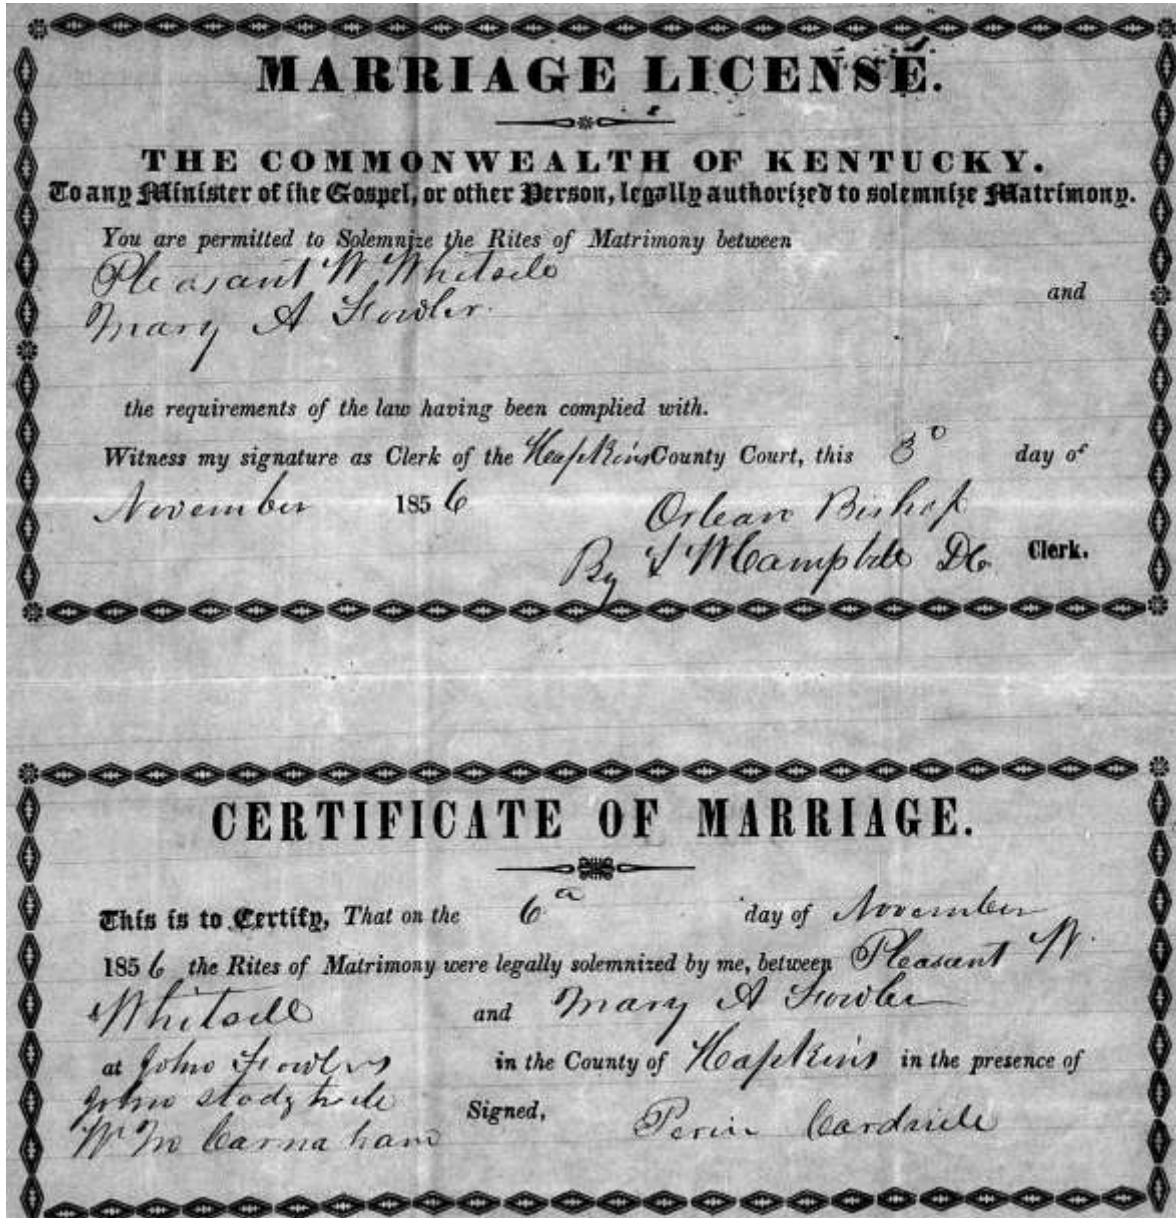 MARRIAGE LICENSE.
THE COMMONWEALTH OF KENTUCKY.
To any Minister of the Gospel, or other Person, legally authorized to solemnize Matrimony.
You are permitted to Solemnize the Rites of Matrimony between
Pleasant W. Whitsell
and
Mary A Fowler.
the requirements of the law having been complied with.
Witness my signature as Clerk of the Hopkins County Court, this 3d day of
November 1856 Orlean Bishop
By Campbell DC Clerk.
CERTIFICATE OF MARRIAGE.
This is to Certify, That on the 6 day of November
1856 the Rites of Matrimony were legally solemnized by me, between Pleasant W.
Whitsell and Mary A Fowler
at John Fowlers in the County of Hopkins in the presence of
John
Signed,
W M Carnaham